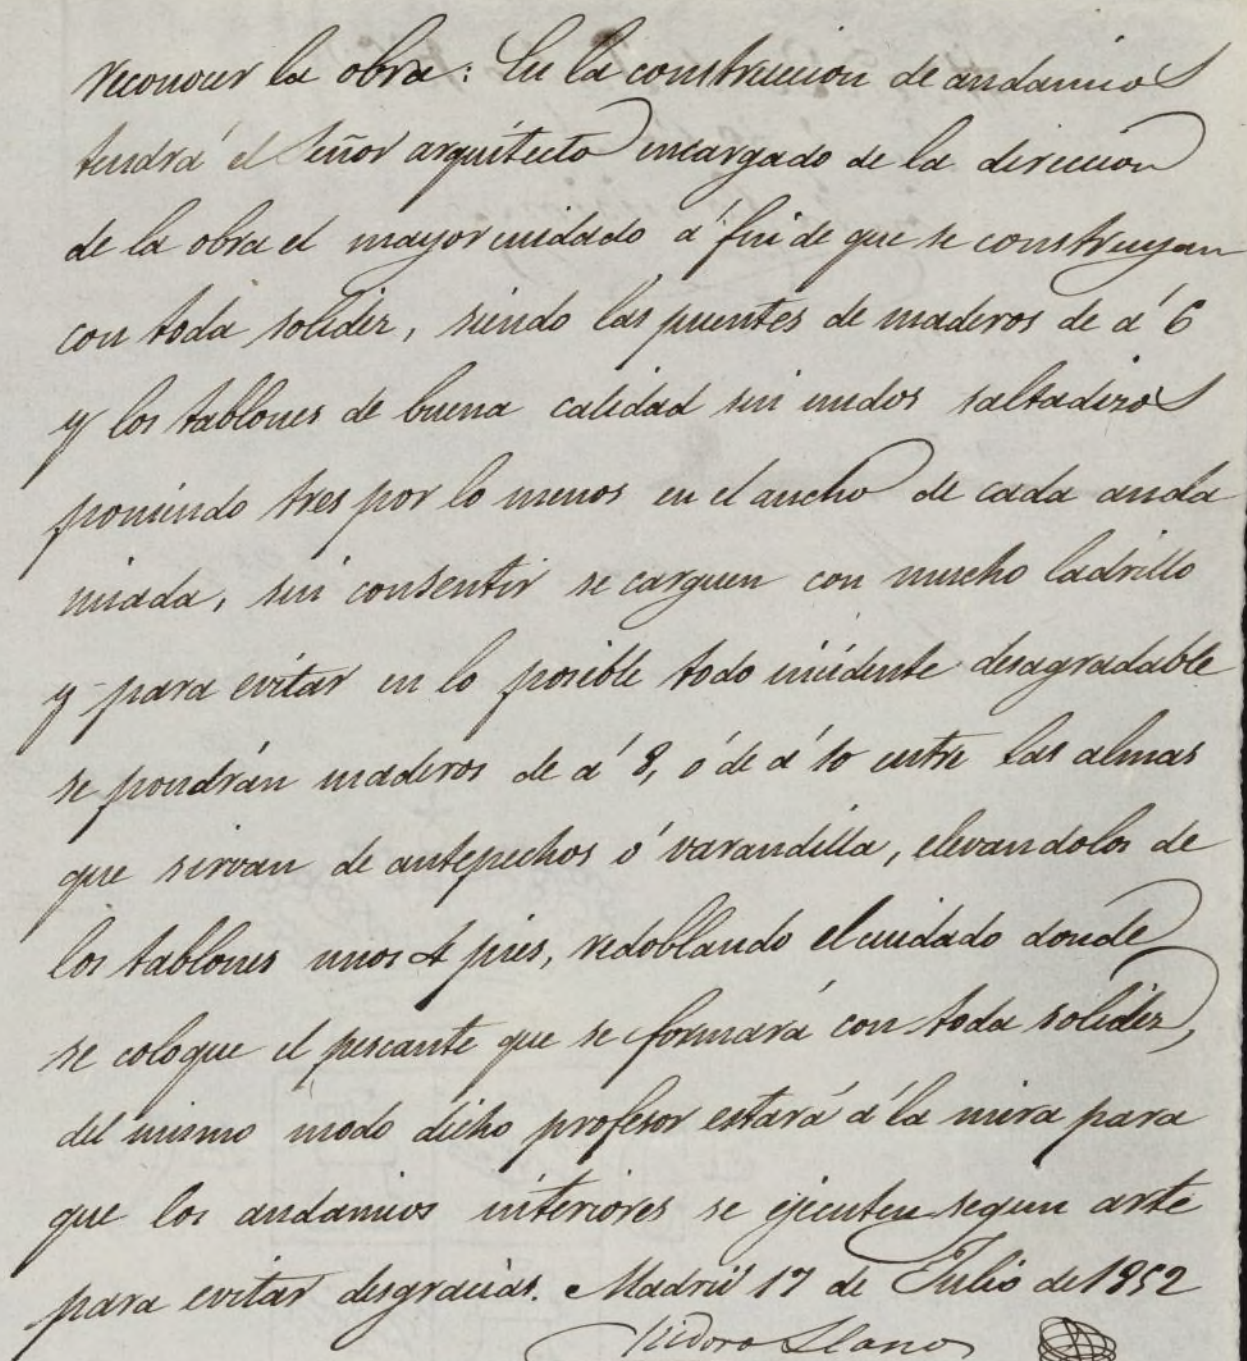 reconocer la obra: En la construccion de andamios
tendrá el Señor arquitecto encargado de la direccion
de la obra el mayor cuidado á fin de que se construyan
con toda solidez, siendo las puentes de maderos de á 6
y los tablones de buena calidad sin nudos saltadizos
poniendo tres por lo menos en el ancho de cada anda
miada, sin consentir se carguen con mucho ladrillo
y para evitar en lo posible todo incidente desagradable
se pondrán maderos de á 8, ó de á 10 entre las almas
que sirvan de antepechos ó varandilla, elevandolos de
los tablones unos 4 pies, redoblando el cuidado donde
se coloque el pescante que se formará con toda solidez,
del mismo modo dicho profesor estará á la mira para
que los andamios interiores se ejecuten segun arte
para evitar desgracias. Madrid 17 de Julio de 1852
Isidoro Llanos